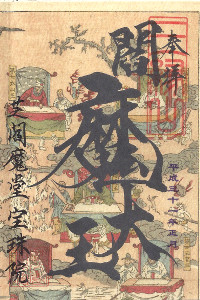 奉拝
平成三十一年正月
閻魔大王
芝閻魔堂宝珠院